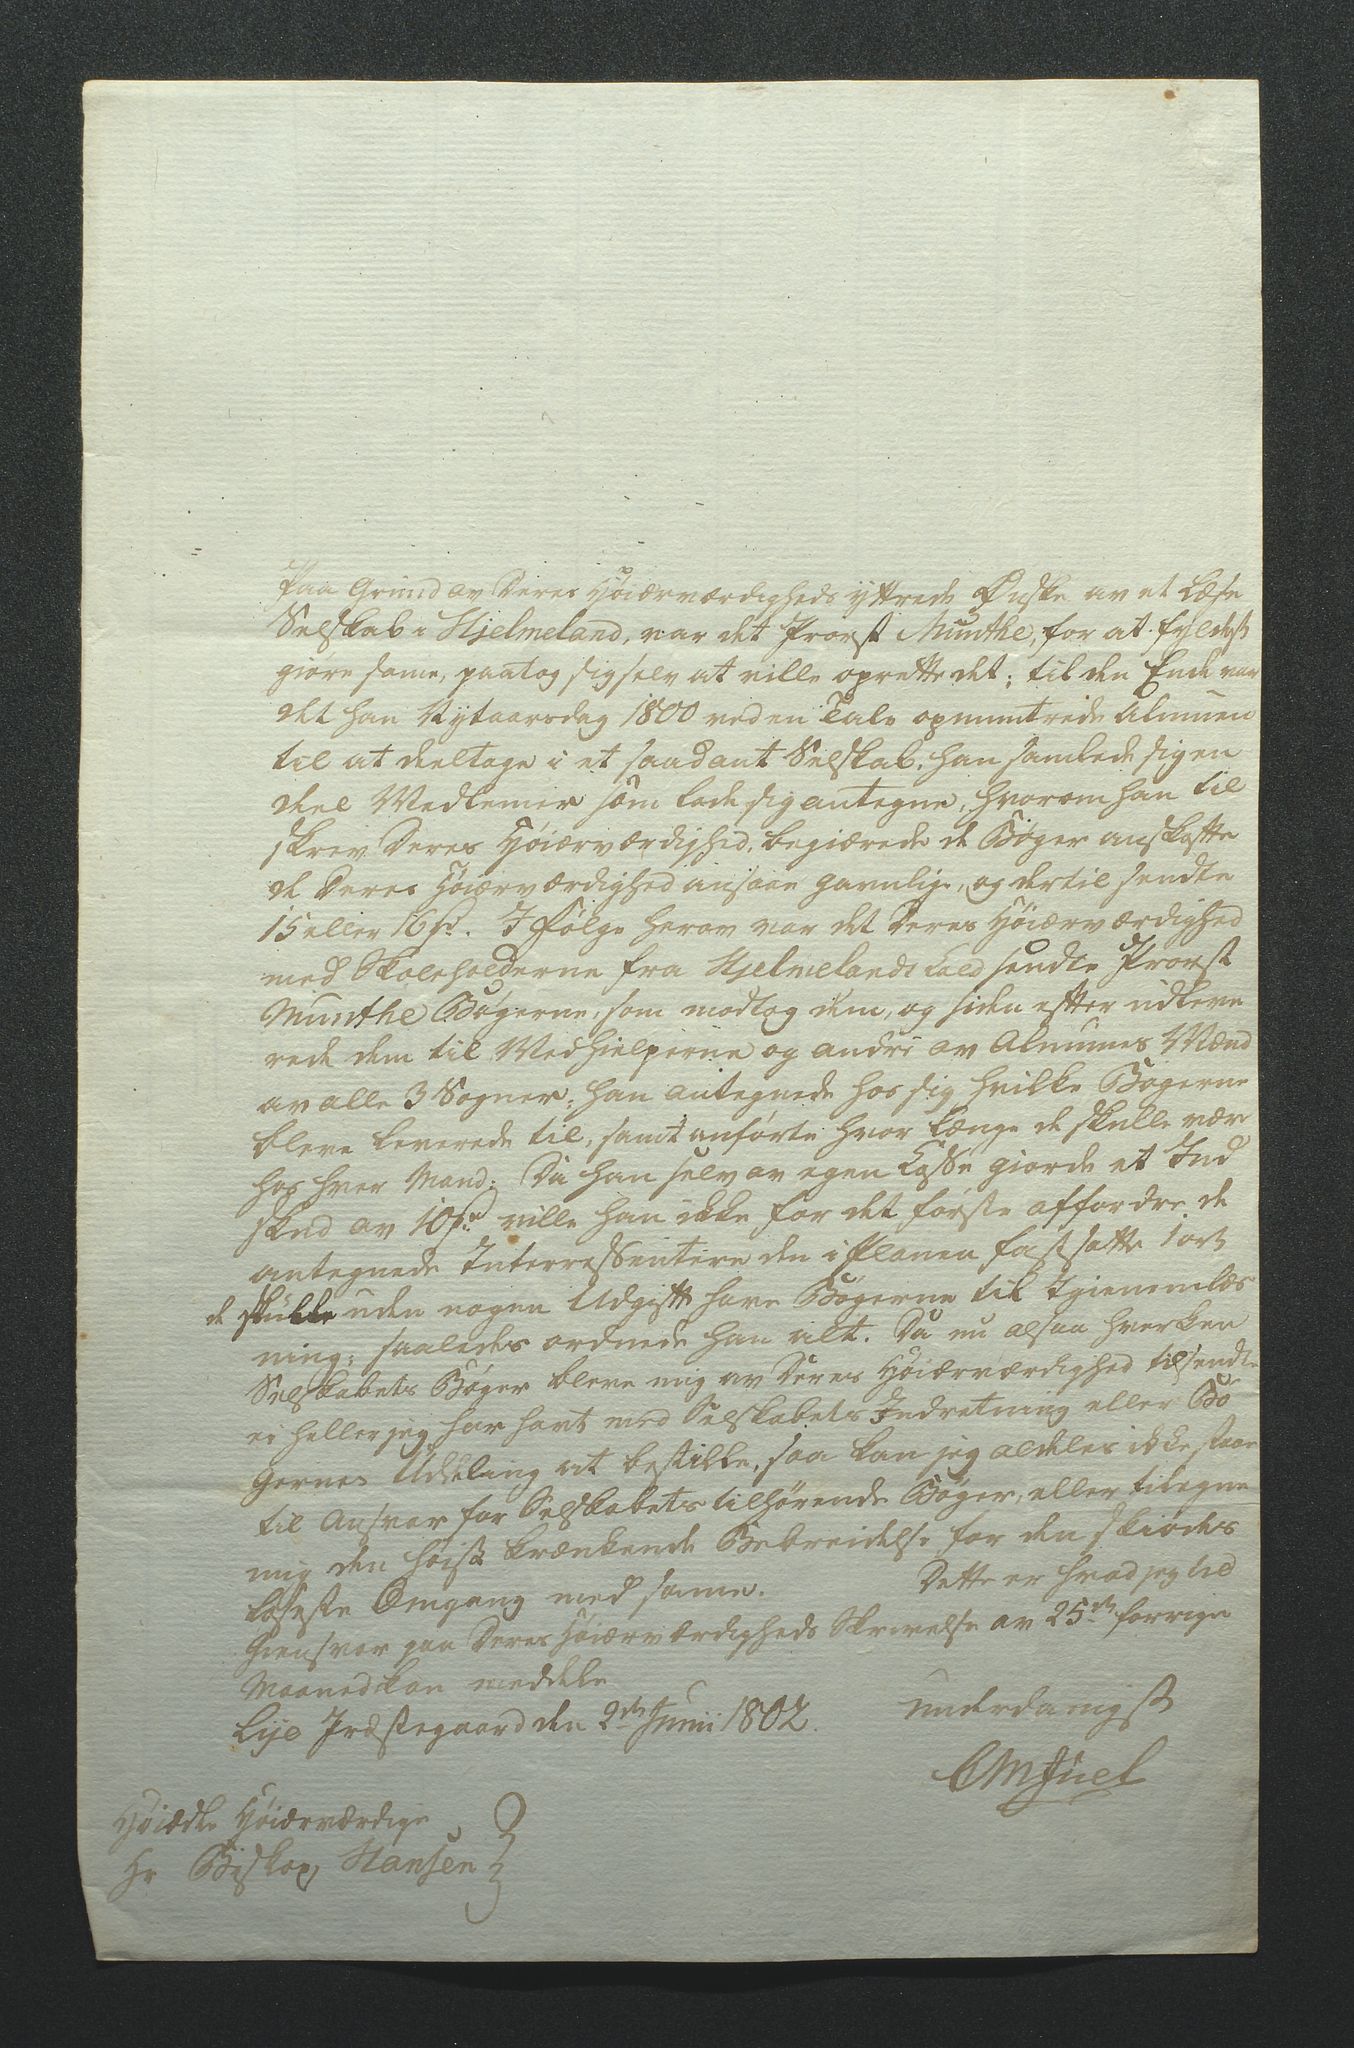 Paa Grund av Deres Høiærværdigheds yttrede Ønske av et Læse
Selskab i Hjelmeland, var det Provst Munthe, for at fyldest
giøre same, paatog sig selv at ville oprette det; til den Ende var
det han Nytaarsdag 1800 ved en Tale opmuntrede Almuen
til at deeltage i et saadant Selskab. han samlede sig en
deel Medlemer som lode sig antegne, hvorom han til
skrev Deres Høiærværdighed, begiærede de Bøger anskaffte
de Deres Høiærværdighed ansaae gavnlige, og dertil sendte
15 eller 16 . I Følge herav var det Deres Høiærværdighed
med Skoleholderne fra Hjelmelands Kald sendte Provst
Munthe Bøgerne, som modtog dem, og siden efter udleve
rede dem til Medhielperne og andre av Almuens Mænd
av alle 3 Sogner; han antegnede hos sig hvilke Bøgerne
bleve leverede til, samt anførte hvor længe de skulle være
hos hver Mand: Da han selv av egen Casse giorde et Ind
skud av 10 ville han ikke for det første affordre de
antegnede Interressentere den i Planen fastsatte 1 ort
de skulle uden nogen Udgift have Bøgerne til Igiennemlæs
ning; saaledes ordnede han alt. Da nu alsaa hverken
Selskabets Bøger bleve mig av Deres Høiærværdighed tilsendte
ei heller jeg har havt med Selskabets Indretning eller Bø
gernes Uddeling at bestille, saa kan jeg aldeles ikke staae
til Ansvar for Selskabets tilhørende Bøger, eller tilegne
mig den høist krænkende Bebreidelse for den skiødes
løseste Omgang med same. Dette er hvad jeg til
Giensvar paa Deres Høiærværdigheds Skrivelse av 25de forrige
Maaned kan meddele
Lye Præstegaard den 2den Junii 1802. underdanigst
CMJuel
Høiædle Høiærværdige
Hr Biskop Hansen